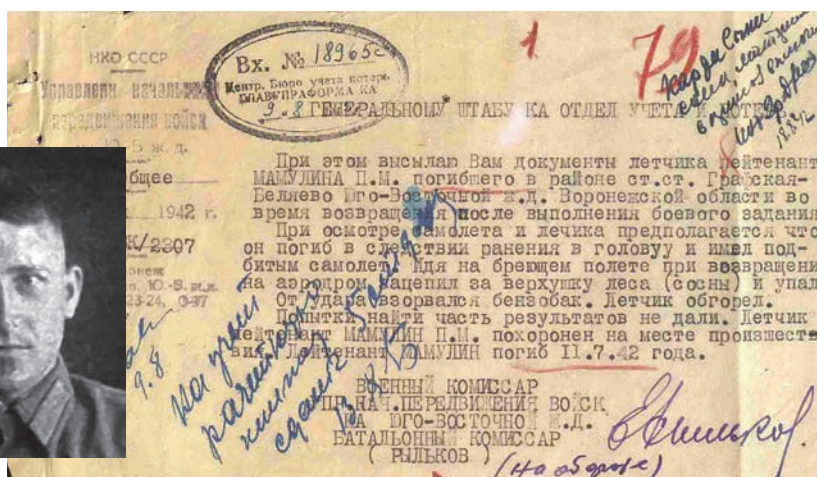 НКО СССР
начальника
передвижения войск
ж.д.
1942 г.
/2307
9.8
Вх. № 18965с
Центр. Бюро учета потерь
ГЛАВУПРАФОРМА КА
9-8
1
79
ГЕНЕРАЛЬНОМУ ШТАБУ КА ОТДЕЛ УЧЕТА И
При этом высылаю Вам документы летчика лейтенант
МАМУЛИНА П.М. погибшего в районе ст.ст. Графская-
Беляево Юго-Восточной ж.д. Воронежской области во
время возвращения после выполнения боевого задания
При осмотре самолета и лечика предполагается что
он погиб в следствии ранения в головуу и имел под-
битым самолет. Идя на бреющем полете при возвращени
на аэродром зацепил за верхушку леса (сосны) и упал
От удара взорвался бензобак. Летчик обгорел.
Попытки найти часть результатов не дали. Летчик
лейтенант МАМУЛИН П.М. похоронен на месте происшест-
вия. Лейтенант МАМУЛИН погиб 11.7.42 года.
ВОЕННЫЙ КОМИССАР
НАЧ.ПЕРЕДВИЖЕНИЯ ВОЙСК
НА ЮГО-ВОСТОЧНОЙ Ж.Д.
БАТАЛЬОННЫЙ КОМИССАР
( РЫЛЬКОВ )
(на обороте)